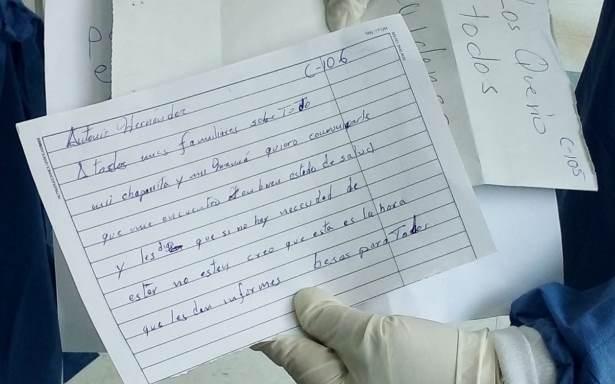 C-106
Antonio Hernandez
A todos mis familiares sobre Todo
mi chaparrita y mi quiero comunicarle
que me encuentro en buen estado de salud
y les digo que si no hay necesidad de
estar no esten creo que esta es la hora
que les dan informes besos para Todos
Los Quero
todos
C-105